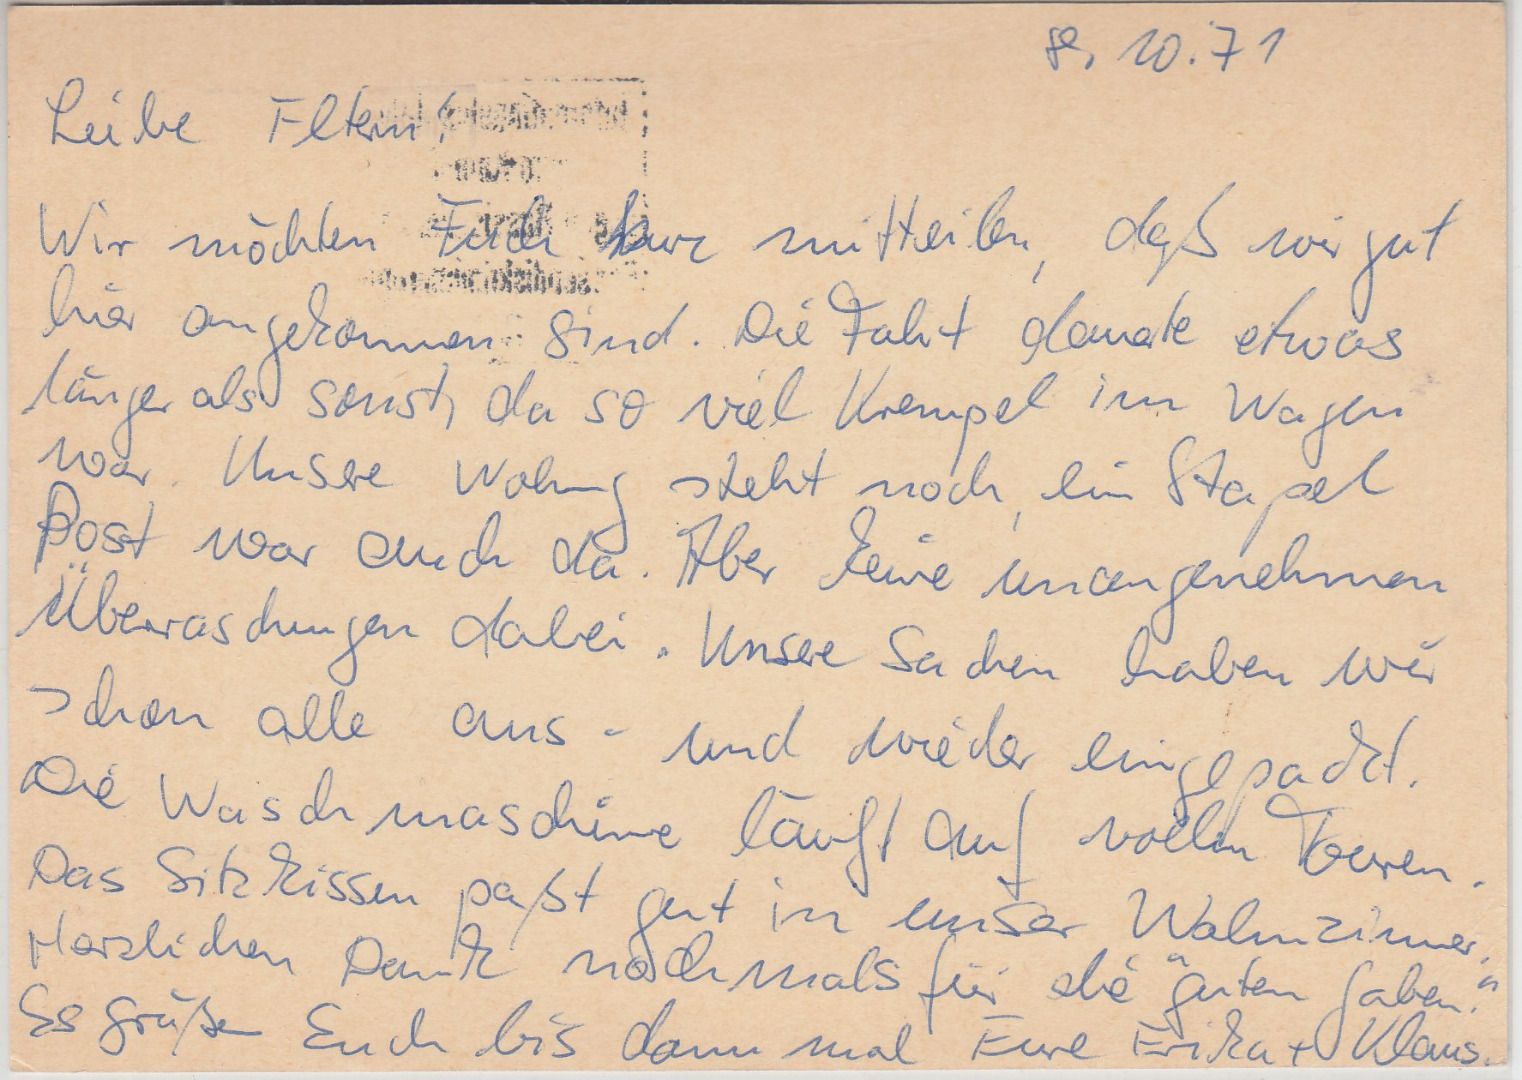 10.71
Liebe Eltern!
Wir möchten Euch kurz mitteilen, daß wir gut
hier angekommen sind. Die Fahrt dauerte etwas
länger als sonst, da so viel Krempel im Wagen
war. Unsere Wohnung steht noch, ein Stapel
Post war auch da. Aber keine unangenehmen
Überraschungen dabei. Unsere Sachen haben wir
schon alle aus- und wieder eingepackt.
Die Waschmaschine läuft auf vollen Touren.
Das Sitzkissen paßt gut in unser Wohnzimmer.
Herzlichen Dank nochmals für die "guten Gaben."
Es grüßen Euch bis dann mal Eure Erika + Klaus.